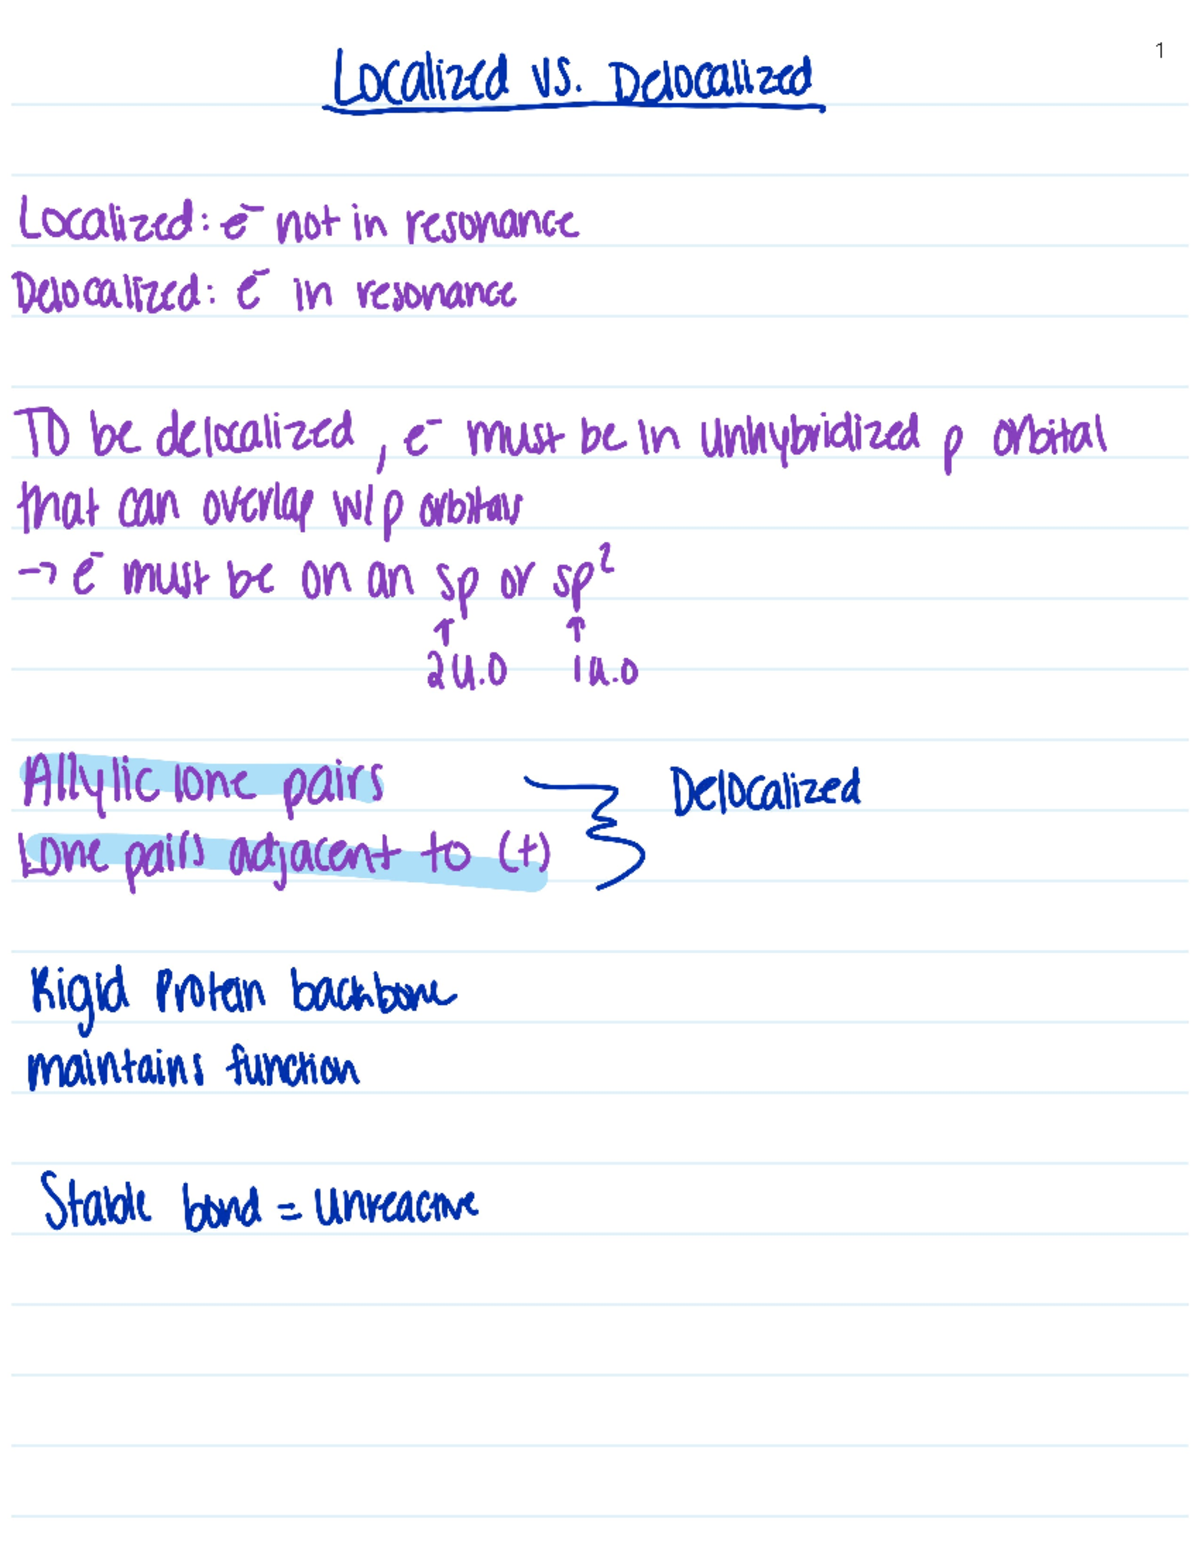 1
Localized vs. Delocalized
Localized: e⁻ not in resonance
Delocalized: e⁻ in resonance
To be delocalized, e⁻ must be in unhybridized p orbital
that can overlap w/ p orbitals
→ e⁻ must be on an sp or sp²
↑ ↑
2 u.o 1 u.o
Allylic lone pairs
Delocalized
Lone pairs adjacent to (+)
Rigid Protein backbone
maintains function
Stable bond = unreactive